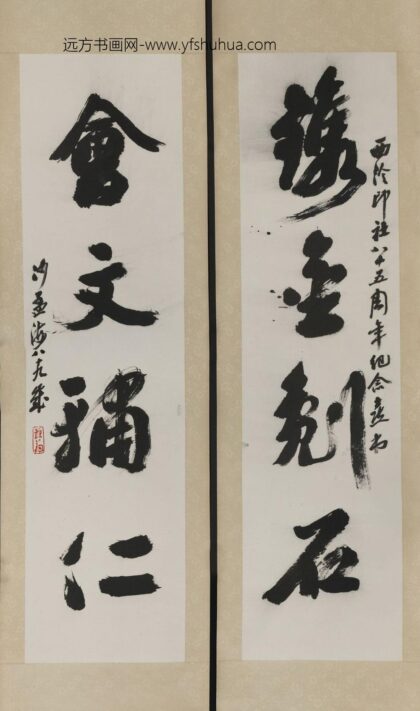 远方书画网-www.yfshuhua.com
鐫金刻石
西泠印社八十五周年纪念
會文輔仁
沙孟海八九歲